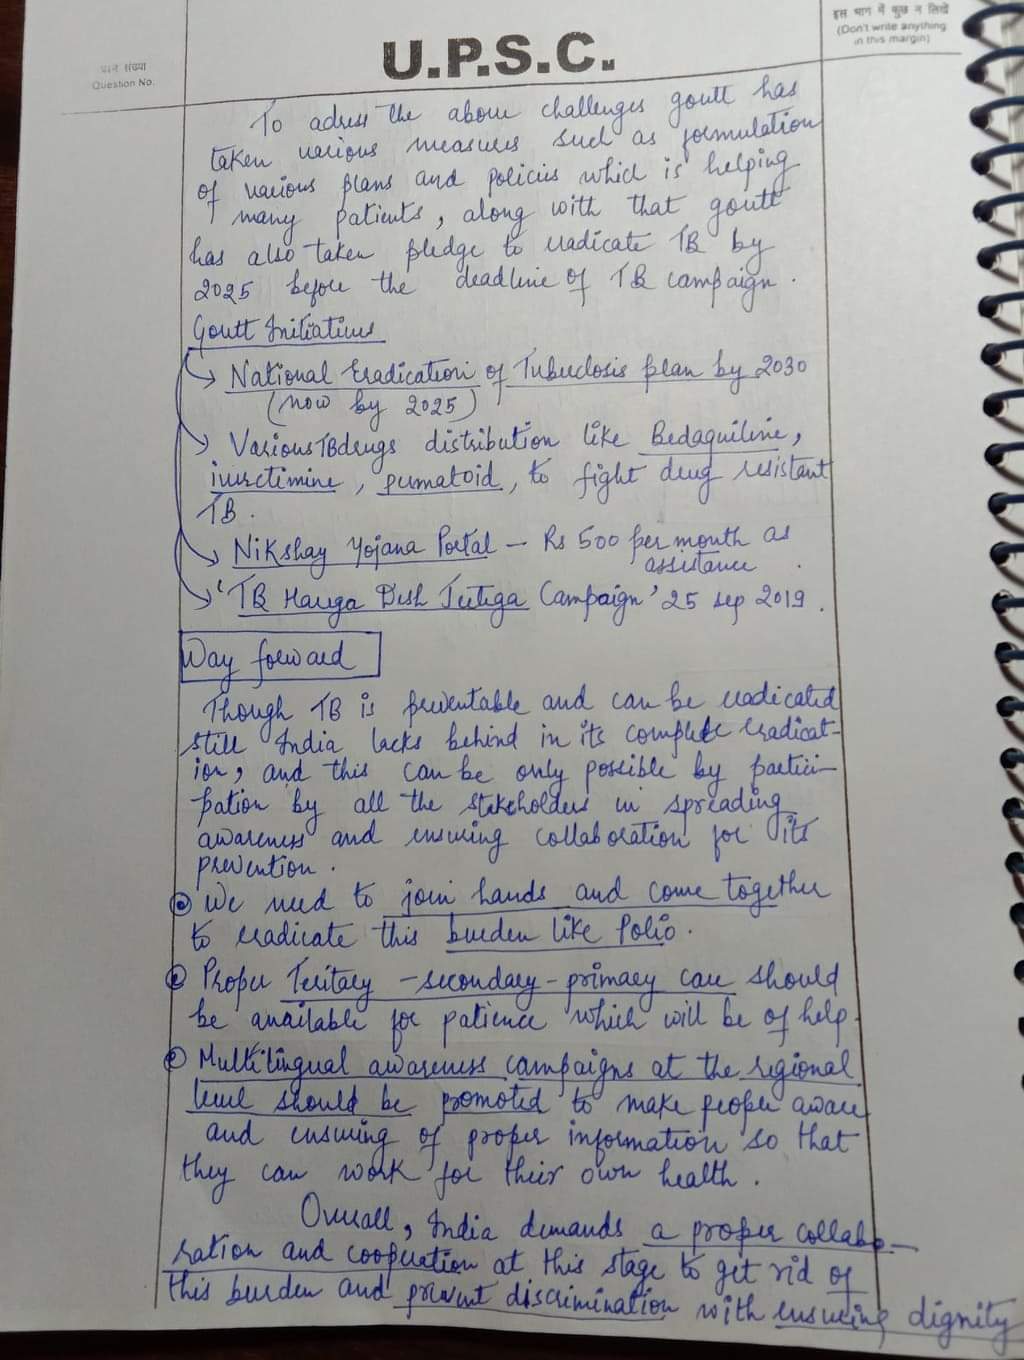 प्रश्न संख्या
Question No.
U.P.S.C.
इस भाग में कुछ न लिखें
(Don't write anything
in this margin)
To adress the above challenges govtt has
taken various measures such as formulation
of various plans and policies which is helping
many patients, along with that govtt
has also taken pledge to eradicate TB by
2025 before the deadline of TB campaign.
Govtt Initiatives
→ National Eradication of Tubuclosis plan by 2030
(now by 2025)
→ Various TB drugs distribution like Bedaquiline,
iverctimine, pumatoid, to fight drug resistant
TB.
→ Nikshay Yojana Portal – Rs 500 per month as
assistance.
→ 'TB Harega Desh Jeetega Campaign' 25 sep 2019.
Way forward
Though TB is preventable and can be eradicated
still India lacks behind in its complete eradicat-
ion, and this can be only possible by partici-
pation by all the stakeholders in spreading
awareness and ensuring collaboration for its
prevention.
We need to join hands and come together
to eradicate this burden like Polio.
Proper Teritary - secondary - primary care should
be available for patience which will be of help.
Multilingual awareness campaigns at the regional
level should be promoted to make people aware
and ensuring of proper information so that
they can work for their own health.
Overall, India demands a proper collabo-
ration and cooperation at this stage to get rid of
this burden and prevent discrimination with ensuring dignity